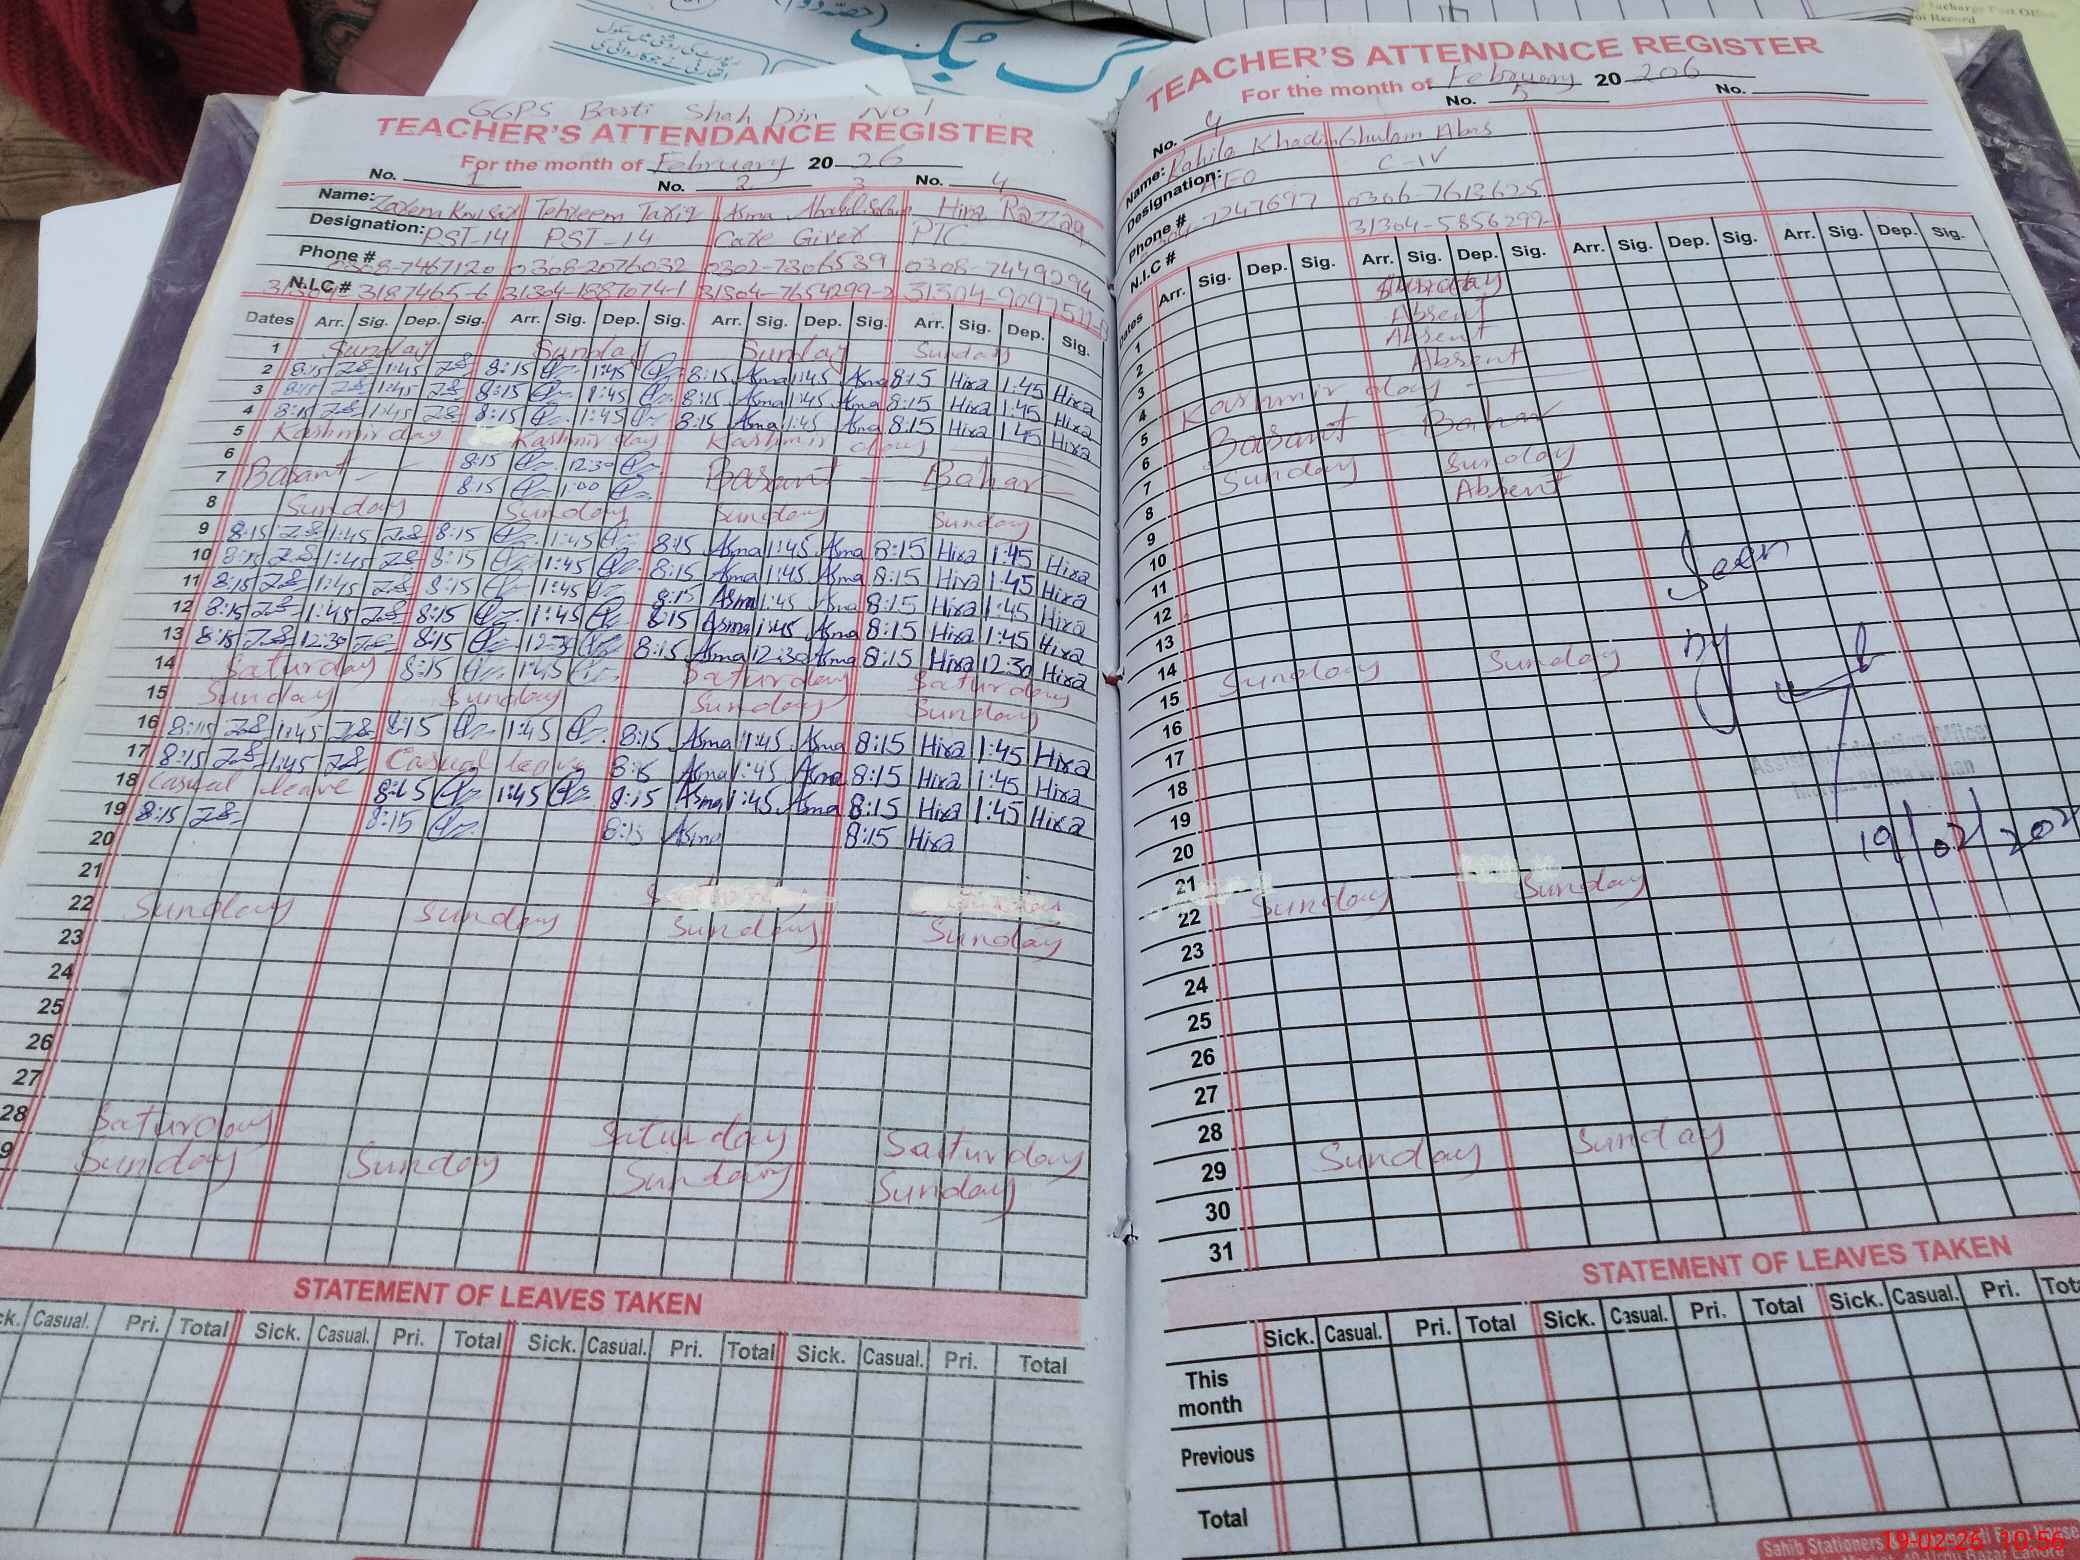 GGPS Basti Shah Din No 1
TEACHER'S ATTENDANCE REGISTER
For the month of February 20 26
No. 1 No. 2 3 No. 4
Name: Kousar Tehreem Tariq Asma Hira Razzaq
Designation: PST-14 PST-14 Care Giver PTC
Phone # 0308-7467120 0308-2076032 0302-7306539 0308-7449294
N.I.C # 3187465-6 31304-1887074-1 31304-7654299-2
Dates Arr. Sig. Dep. Sig. Arr. Sig. Dep. Sig. Arr. Sig. Dep. Sig. Arr. Sig. Dep. Sig.
1 Sunday Sunday Sunday Sunday
2 8:15 1:45 8:15 1:45 8:15 Asma 1:45 Asma 8:15 Hira 1:45 Hira
3 8:15 1:45 8:15 1:45 8:15 Asma 1:45 Asma 8:15 Hira 1:45 Hira
4 8:15 1:45 8:15 1:45 8:15 Asma 1:45 Asma 8:15 Hira 1:45 Hira
5 Kashmir day Kashmir day Kashmir day
6 8:15 12:30
7 Basant - 8:15 1:00 Basant - Bahar
8 Sunday Sunday Sunday Sunday
9 8:15 1:45 8:15 1:45 8:15 Asma 1:45 Asma 8:15 Hira 1:45 Hira
10 8:15 1:45 8:15 1:45 8:15 Asma 1:45 Asma 8:15 Hira 1:45 Hira
11 8:15 1:45 8:15 1:45 8:15 Asma 1:45 Asma 8:15 Hira 1:45 Hira
12 8:15 1:45 8:15 1:45 8:15 Asma 1:45 Asma 8:15 Hira 1:45 Hira
13 8:15 12:30 8:15 12:30 8:15 Asma 12:30 Asma 8:15 Hira 12:30 Hira
14 Saturday 8:15 1:45 Saturday Saturday
15 Sunday Sunday Sunday Sunday
16 8:15 1:45 8:15 1:45 8:15 Asma 1:45 Asma 8:15 Hira 1:45 Hira
17 8:15 1:45 Casual leave 8:15 Asma 1:45 Asma 8:15 Hira 1:45 Hira
18 Casual leave 8:15 1:45 8:15 Asma 1:45 Asma 8:15 Hira 1:45 Hira
19 8:15 8:15 8:15 Asma 8:15 Hira
20
21
22 Sunday Sunday Sunday Sunday
23
24
25
26
27
28 Saturday Saturday Saturday
9 Sunday Sunday Sunday Sunday
STATEMENT OF LEAVES TAKEN
ck. Casual. Pri. Total Sick. Casual. Pri. Total Sick. Casual. Pri. Total Sick. Casual. Pri. Total
TEACHER'S ATTENDANCE REGISTER
For the month of February 20 206
No. 4 No. 5 No.
Name: Rahila Ghulam Abas
Designation: AEO C-IV
Phone # 7247697 0306-7613625
N.I.C # 31304-5856299-1
Dates Arr. Sig. Dep. Sig. Arr. Sig. Dep. Sig. Arr. Sig. Dep. Sig. Arr. Sig. Dep. Sig.
1 Sunday
2 Absent
3 Absent
4 Absent
5 Kashmir day
6 Basant - Bahar
7
8 Sunday Sunday
9 Absent
10
11
12
13
14
15 Sunday Sunday
16
17
18
19
20
21
22 Sunday Sunday
23
24
25
26
27
28
29 Sunday Sunday
30
31
Seen
by
19/02/202
STATEMENT OF LEAVES TAKEN
Sick. Casual. Pri. Total Sick. Casual. Pri. Total Sick. Casual. Pri. Tot
This month
Previous
Total
Sahib Stationers
19-02-26 10:56